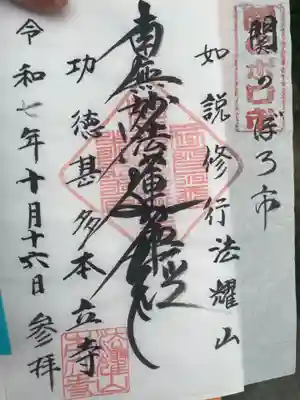 関のぼろ市
如説修行法耀山
南無妙法蓮華経
功徳甚多本立寺
令和七年十月十六日 参拝